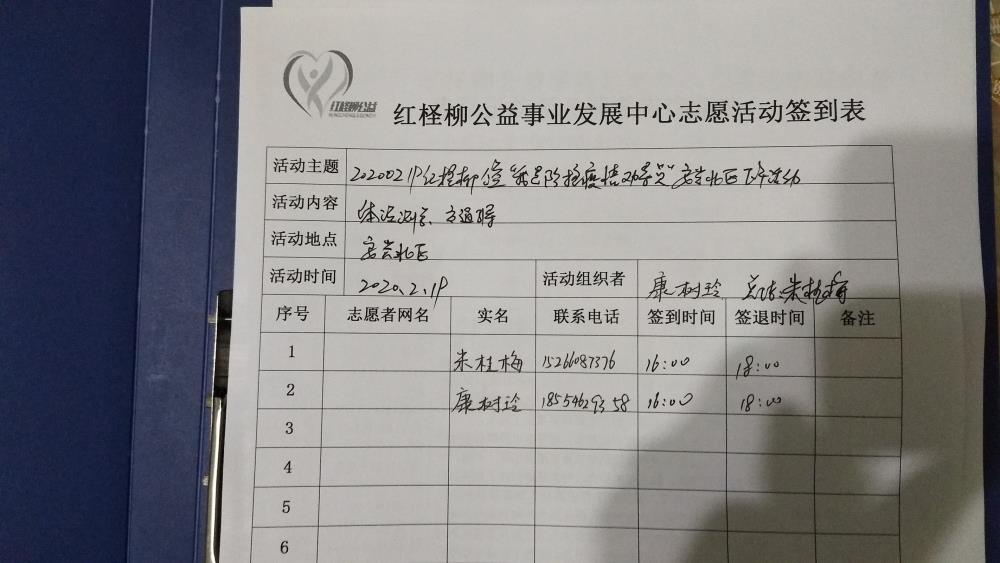 红柽柳公益
红柽柳公益事业发展中心志愿活动签到表
活动主题 20200219红柽柳 防控疫情 宏昌北区下午活动
活动内容 体温测量、
活动地点 宏昌北区
活动时间 2020.2.19 活动组织者 康树玲 朱桂梅
序号 志愿者网名 实名 联系电话 签到时间 签退时间 备注
1 朱桂梅 15266087376 16:00 18:00
2 康树玲 18554629358 16:00 18:00
3
4
5
6